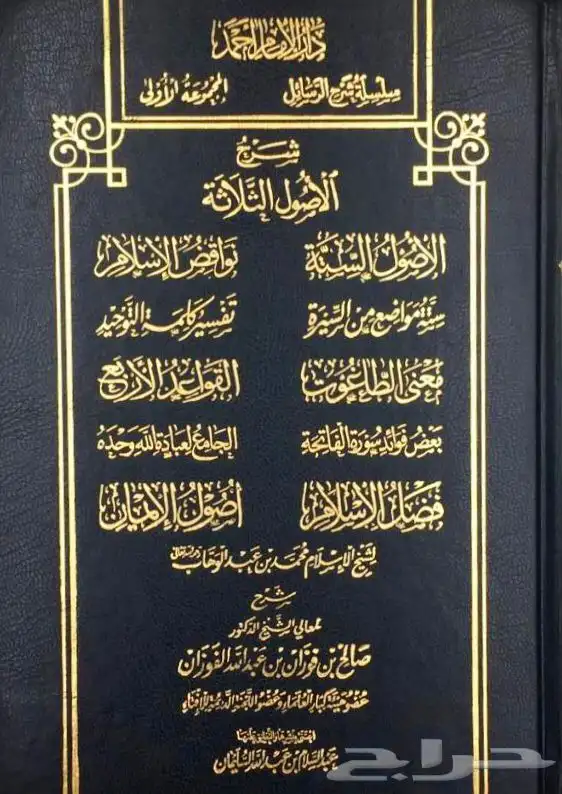 دار الإمام أحمد
سلسلة شرح الرسائل المجموعة الأولى
شرح
الأصول الثلاثة
الأصول الستة نواقض الإسلام
ستة مواضع من السيرة تفسير كلمة التوحيد
معنى الطاغوت القواعد الأربع
بعض فوائد سورة الفاتحة الجامع لعبادة الله وحده
فضل الإسلام أصول الإيمان
لشيخ الإسلام محمد بن عبد الوهاب
شرح
معالي الشيخ الدكتور
صالح بن فوزان بن عبد الله الفوزان
عضو هيئة كبار العلماء وعضو اللجنة الدائمة للإفتاء
عبد السلام بن عبد الله السليمان
حراج